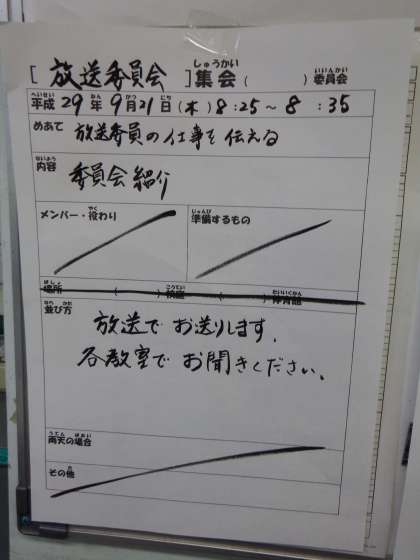 [ 放送委員会 ]集会( )委員会
平成29年9月21日(木)8:25~8:35
めあて 放送委員の仕事を伝える
内容 委員会紹介
メンバー・役わり 準備するもの
場所 ( )校庭 ( )体育館
並び方
放送でお送りします。
各教室でお聞きください。
雨天の場合
その他